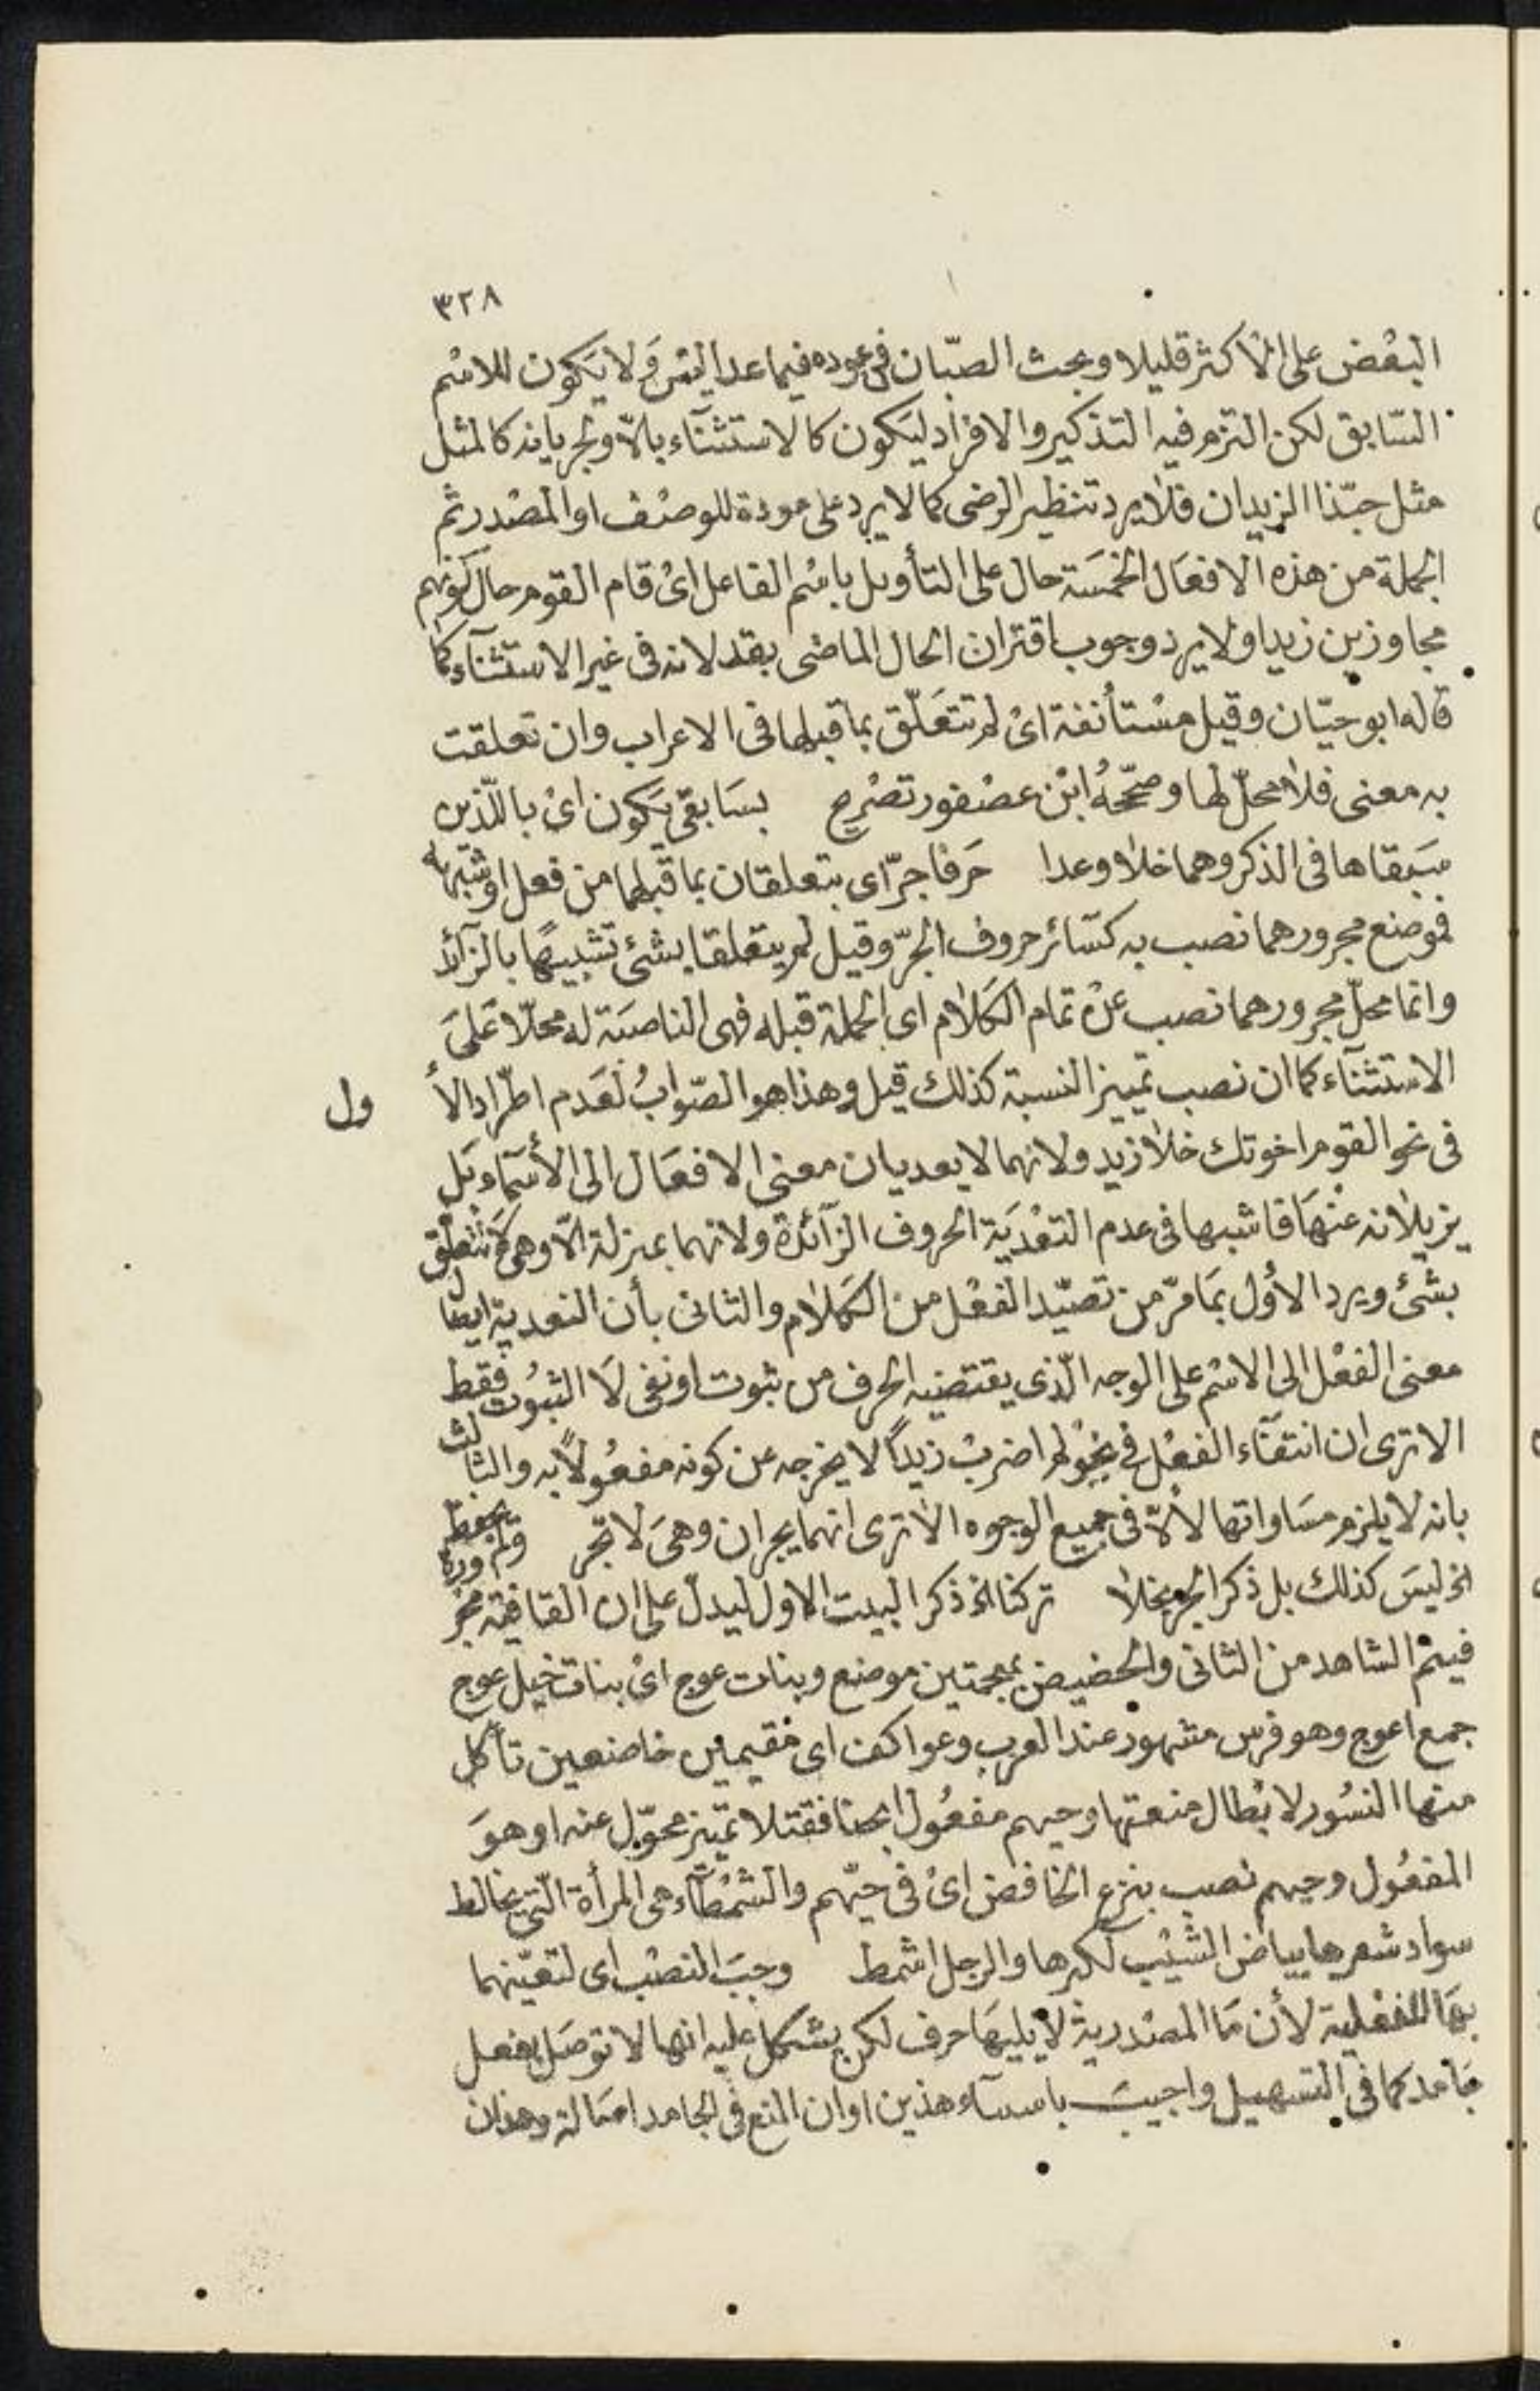 ٣٢٨
البعْض على الأكثر قليلا وبحث الصبّان فى عوده فيما عدا ليس وَلا يَكون للاسْم
السّابق لكن التزم فيه التذكير والافراد ليَكون كالاستثنآء بالاّ ولجريانه كالمثل
مثل حبّذا الزيدان فلا يرد تنظير الرضى كما لا يرد على عوده للوصْف او المصْدر ثم
الجملة من هذه الافعَال الخمسَة حال على التأويل باسْم الفاعل اىْ قام القوم حال كونهم
مجاوزين زيدا ولا يرد وجوب اقتران الحال الماضى بقد لانه فى غير الاستثنآء كما
قاله ابو حيّان وقيل مسْتأنفة اىْ لم تتعَلّق بما قبلها فى الاعراب وان تعلقت
به معنى فلا محلّ لها وصحّحهُ ابْن عصْفور تصْريح بسَابقىْ يَكون اىْ باللّذين
سَبقاها فى الذكر وهما خلا وعدا حَرفا جرّ اى يتعلقان بما قبلهما من فعل او شبهه
فموضع مجرورهما نصب به كسَائر حروف الجرّ وقيل لم يتعلقا بشئ تشبيهًا بالزآئد
وانما محلّ مجرورهما نصب عنْ تمام الكَلام اى الجملة قبله فهى الناصبَة له محلاّ عَلىَ
الاستثنآء كما ان نصب تمييز النسبة كذلك قيل وهذا هو الصّوابُ لعَدم اطّراد الأول
فى نحو القوم اخوتك خلا زيد ولانهما لا يعديان معنى الافعَال الى الأسمآء بَل
يزيلانه عنْهَا فاشبها فى عدم التعْديَة الحروف الزآئدة ولانهما بمنزلة الاّ وهى لا تتعلق
بشئ ويرد الأول بمَا مرّ من تصيّد الفعْل من الكَلام والثانى بأن التعدية ايصال
معنى الفعْل الى الاسْم على الوجه الّذى يقتضيه الحرف من ثبوت او نفى لَا الثبوُت فقط
الا ترى ان انتفآء الفعْل فى نحْو لم اضربْ زيداً لا يخرجه عن كونه مفعُولاً به والثالث
بانه لا يلزم مسَاواتها لالاّ فى جميع الوجوه الا ترى انهما يجران وهىَ لا تجر ولم يحفظ
اخ ليسَ كذلك بل ذكر الجر بخلا تركنا اخ ذكر البيت الاول ليدلّ على ان القافية مجرورة
فيتم الشاهد من الثانى والحضيض بمعجمتين موضع وبنات عوج اىْ بنات خيل عوج
جمع اعوج وهو فرس مشهور عند العرب وعواكف اى مقيمين خاضعين تأكل
منها النسُور لابْطال منعتها وحيهم مفعُول ابحنا فقتلا تمّييز محوّل عنه او هوَ
المفعُول وحيهم نصب بنزع الخافض اىْ فى حيّهم والشمْطآء هى المرأة التى يخالط
سواد شعرها بياض الشيْب لكبرها والرجل اشمط وجبَ النصْب اى لتعيّنهما
بهَا للفعْلية لأن مَا المصْدرية لا يليهَا حرف لكن يشكل عليه انها لا توصَل بفعل
جَامد كما فى التسهيل واجيبَ باستثنآء هذين او ان المنع فى الجامد اصَالة وهذان